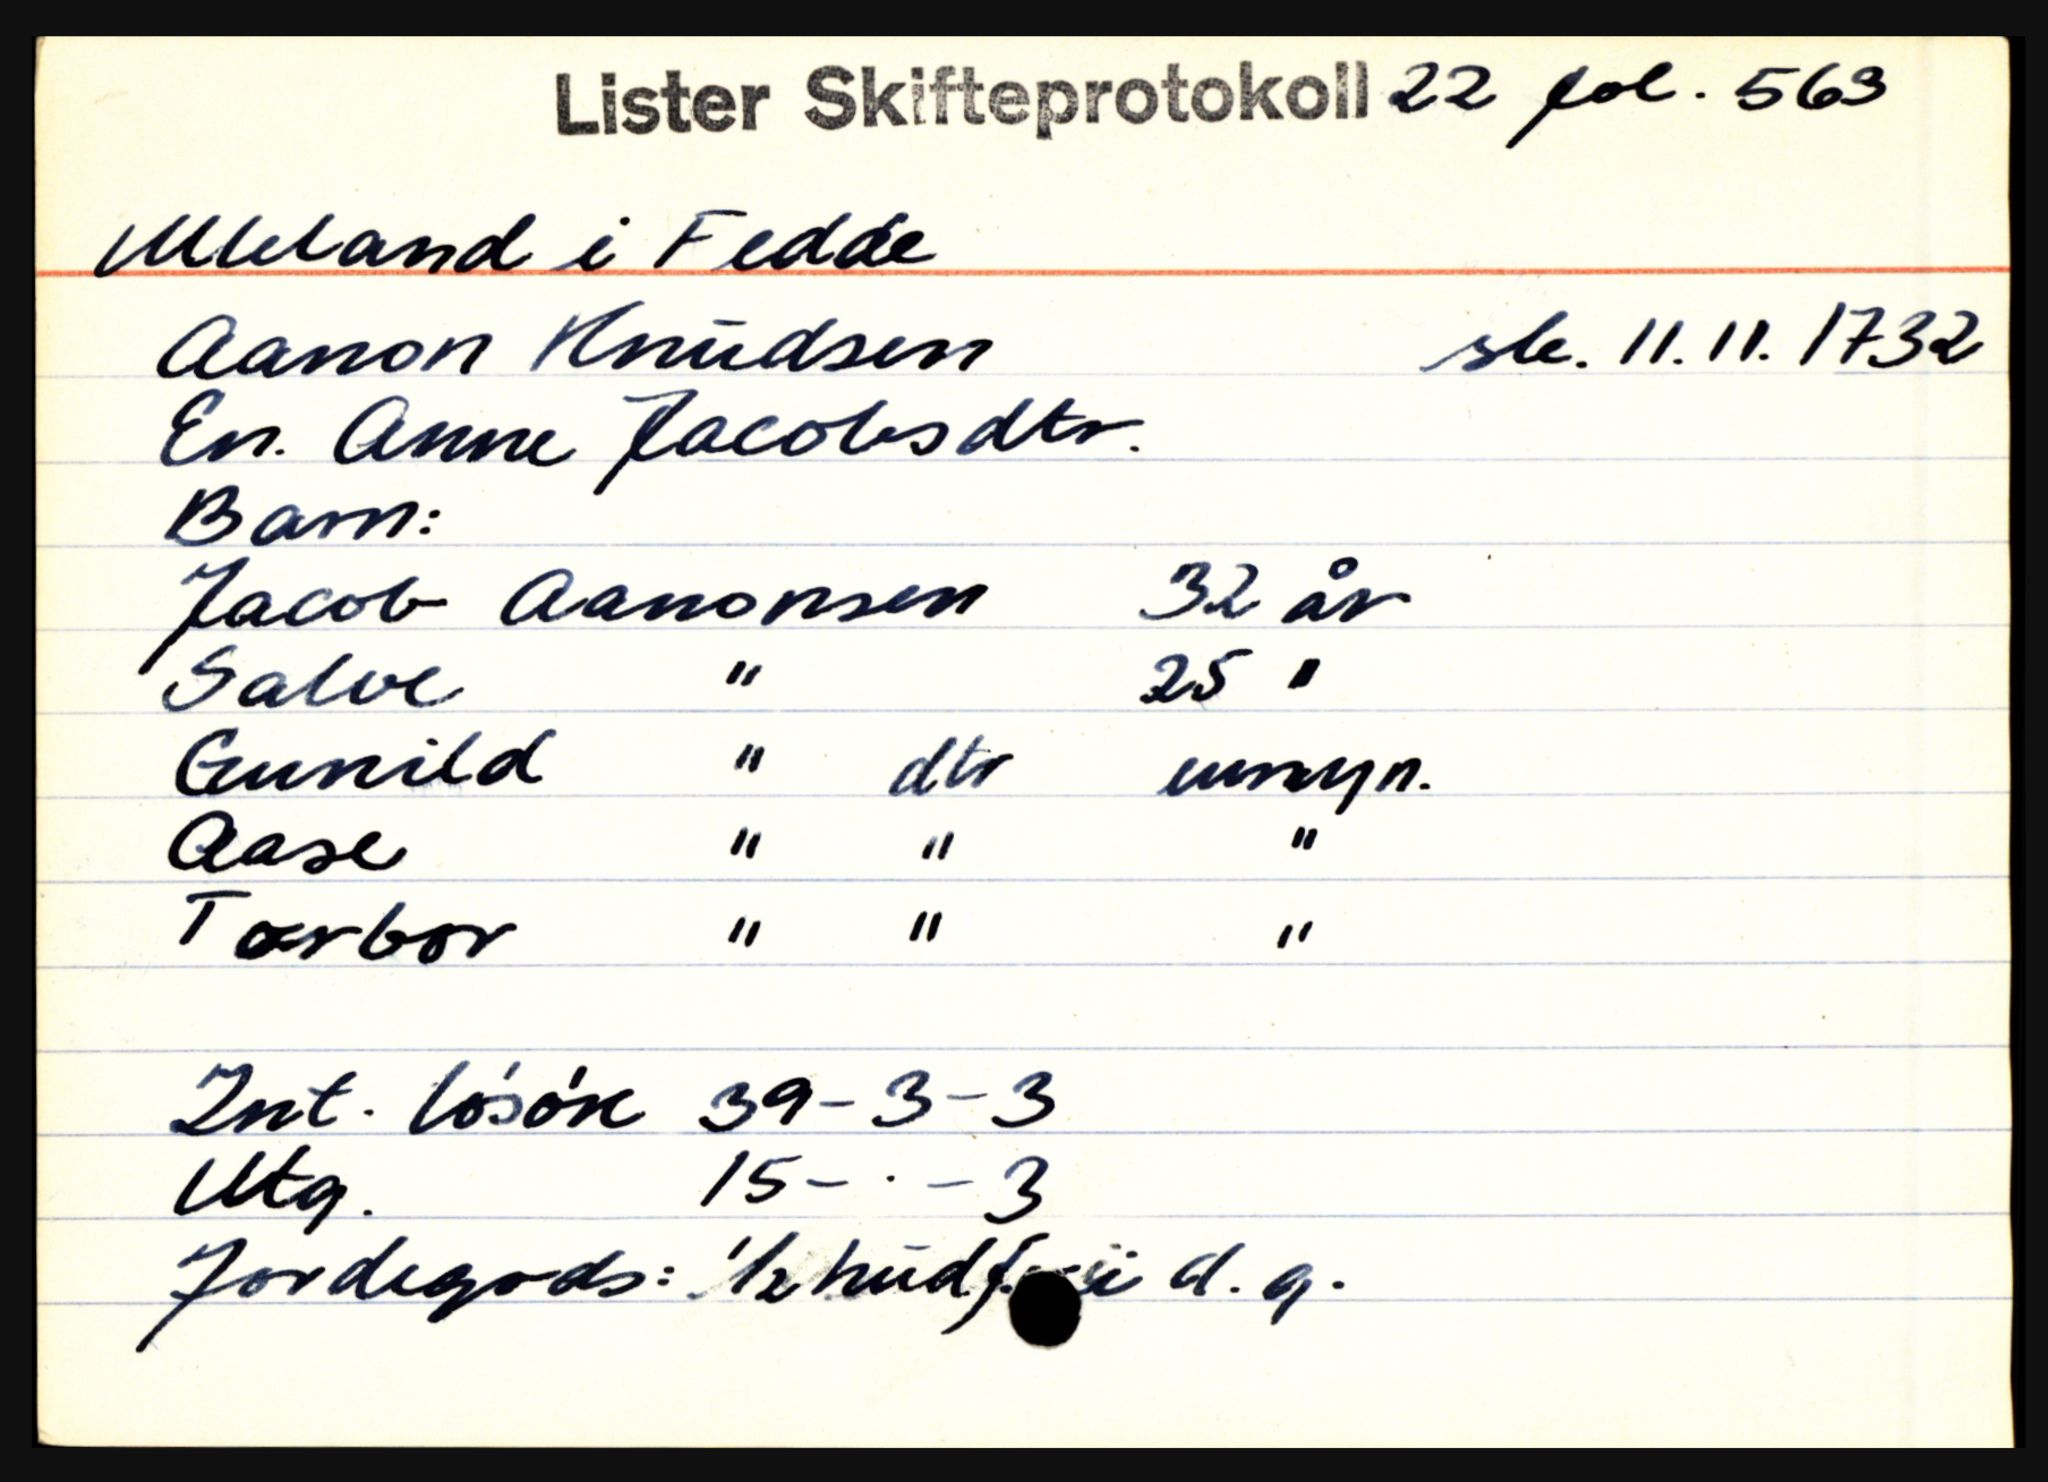 Lister Skifteprotokoll 22 fol. 563
Ulleland i Fedde
Aanon Knudsen sk. 11.11.1732
En. Anne Jacobsdtr.
Barn:
Jacob Aanonsen 32 år
Salve " 25 "
Gunild " dtr umyn.
Aase " " "
Torbor " " "
Int. lösöre 39-3-3
Utg. 15-·-3
Jordegods: 1/2 hud i d.g.